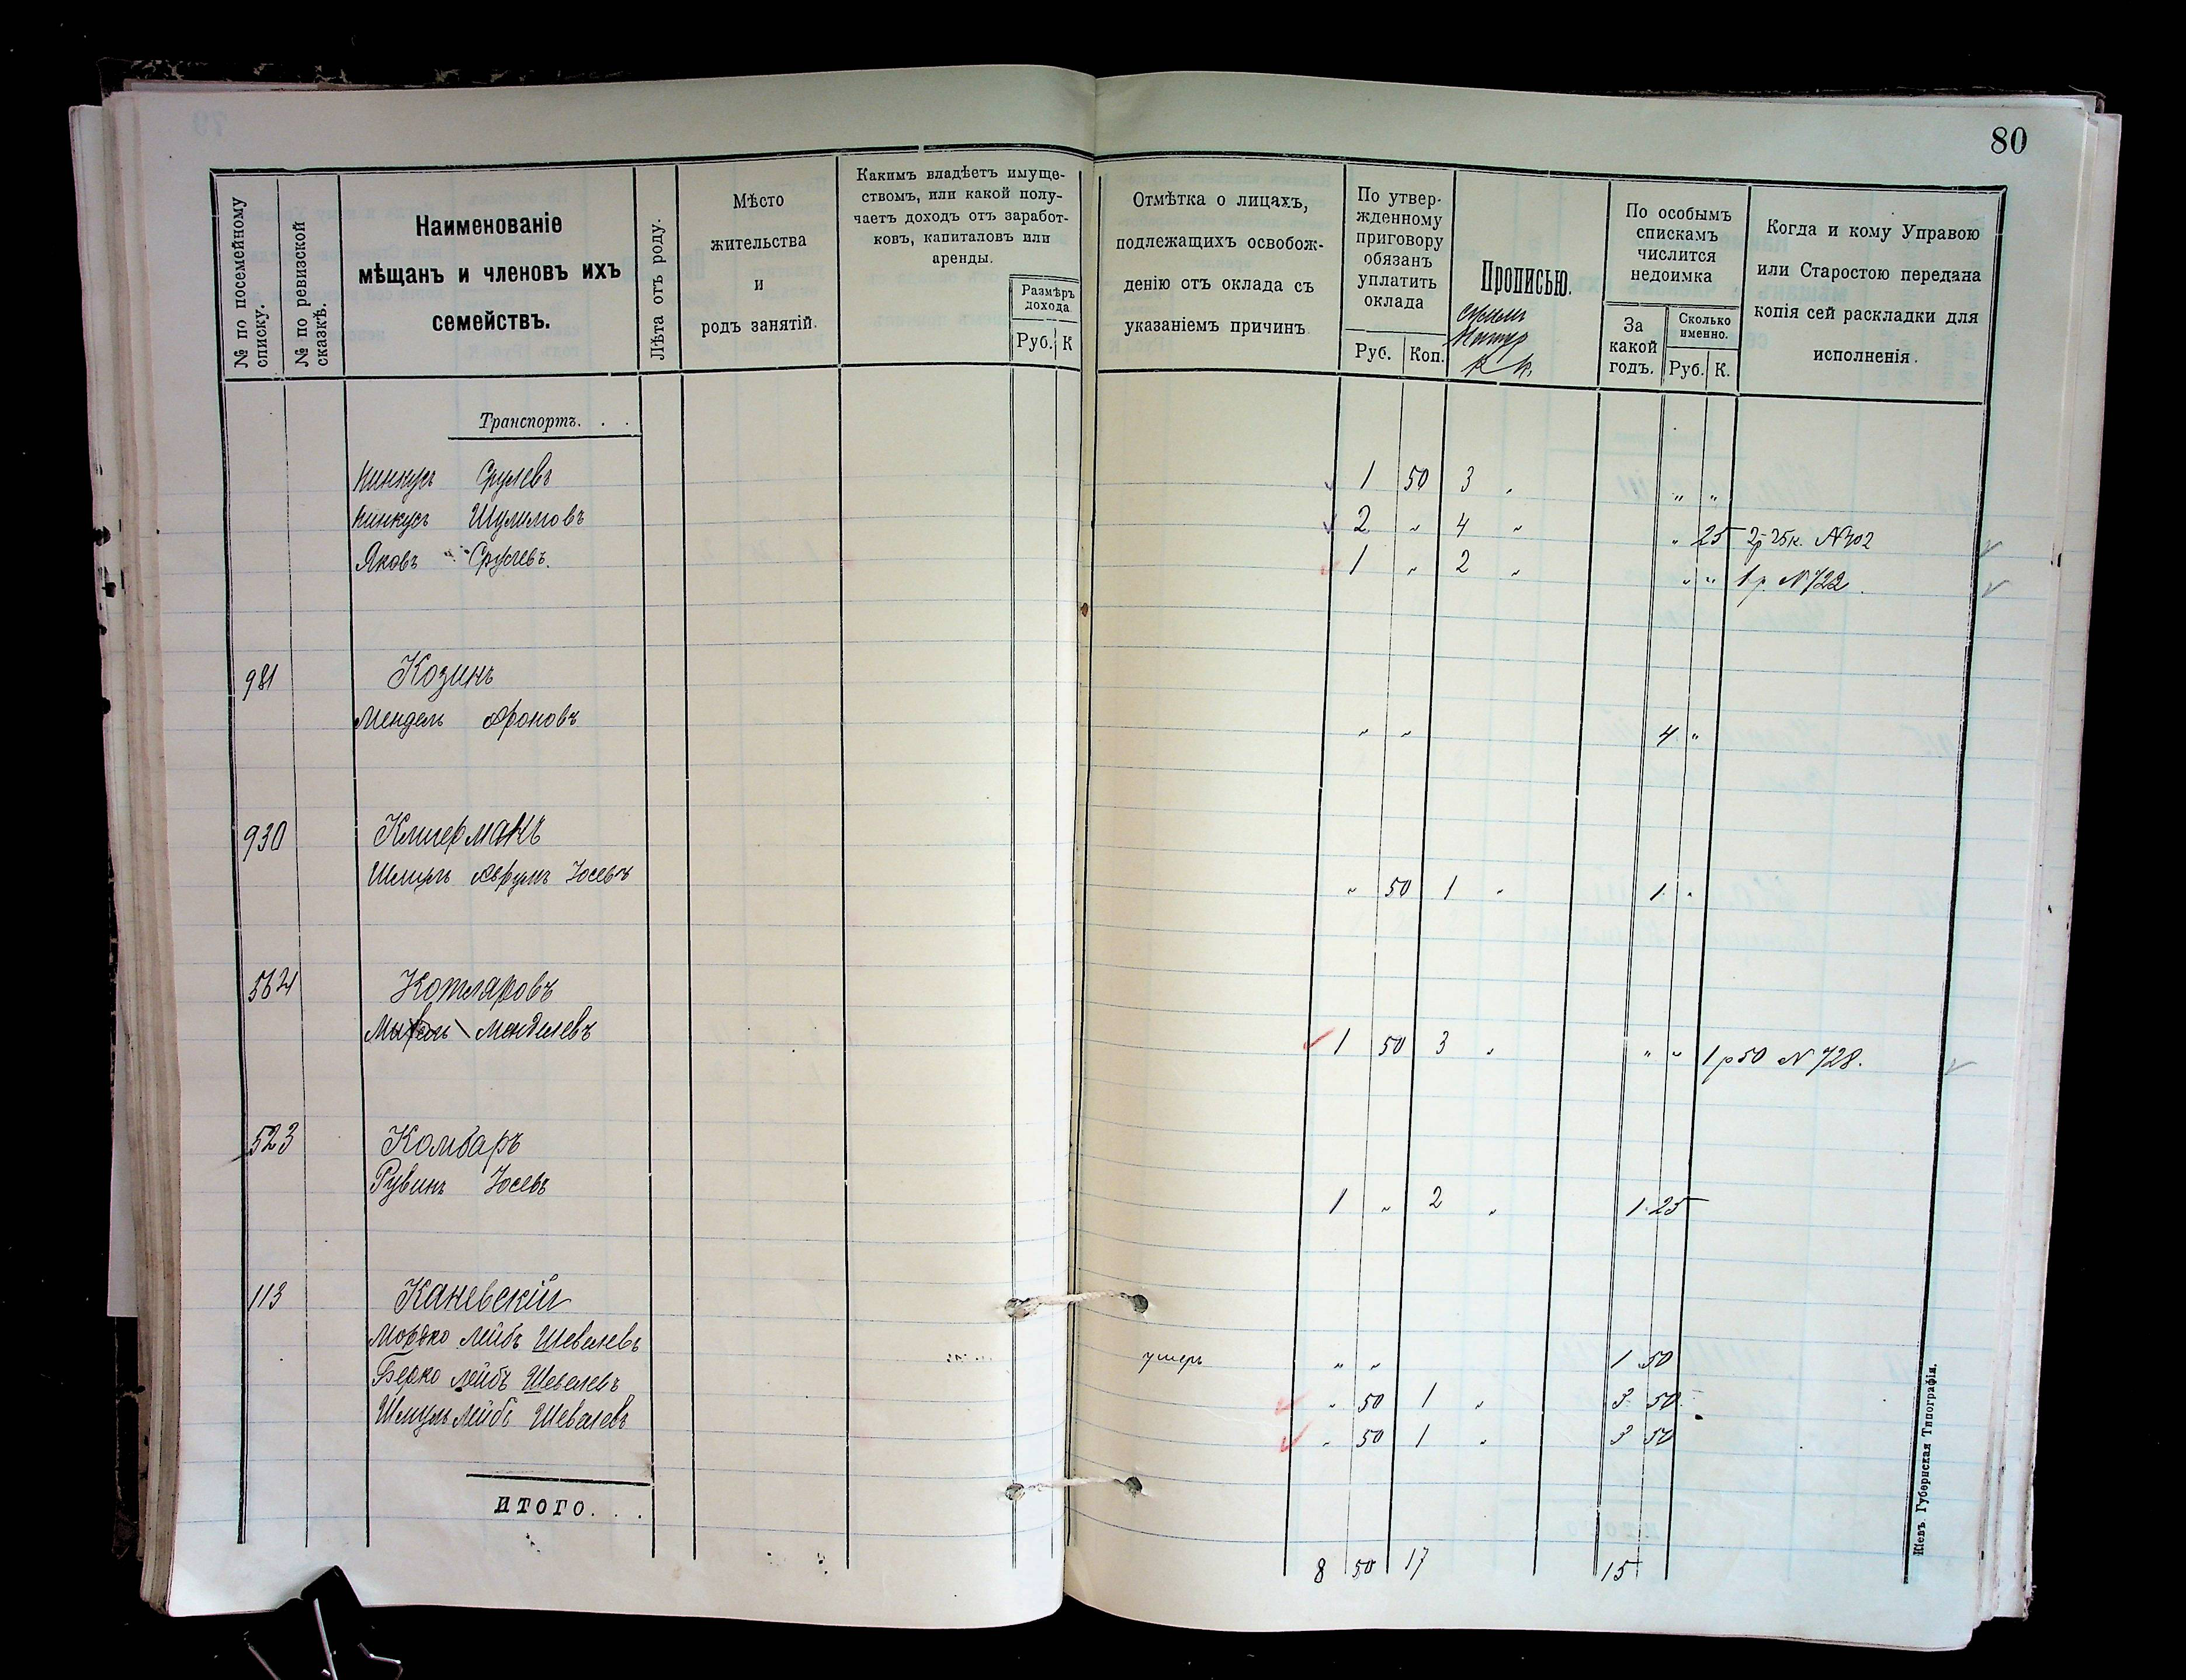 80
№ по посемейному списку.
№ по ревизской сказкѣ.
Наименованіе
мѣщанъ и членовъ ихъ
семействъ.
Лѣта отъ роду.
Мѣсто
жительства
и
родъ занятій.
Какимъ владѣетъ имуще-
ствомъ, или какой полу-
чаетъ доходъ отъ заработ-
ковъ, капиталовъ или
аренды.
Размѣръ
дохода
Руб. К
Отмѣтка о лицахъ,
подлежащихъ освобож-
денію отъ оклада съ
указаніемъ причинъ
По утвер-
жденному
приговору
обязанъ
уплатить
оклада
Руб. Коп.
Прописью.
По особымъ
спискамъ
числится
недоимка
За
какой
годъ.
Сколько
именно.
Руб. К.
Когда и кому Управою
или Старостою передана
копія сей раскладки для
исполненія.
Транспортъ. . .
Пинкусъ Срулевъ 1 50 3 „ „ „
Пинкусъ Шулимовъ 2 „ 4 „ „ 25 2р 25к. №302
Яковъ Срулевъ. 1 „ 2 „ „ „ 1 р. №722.
981 Козинъ
Мендель Ароновъ „ „ 4 „
930 Клигерманъ
Аврумъ Іосевъ „ 50 1 „ 1 „
564 Котляровъ
Менделевъ 1 50 3 „ „ „ 1 р 50 №728.
523 Комбаръ
Рувинъ Іосевъ 1 „ 2 „ 1 25
113 Каневскій
Мордко Лейбъ Шевелевъ умеръ „ „ 1 50
Берко Лейбъ Шевелевъ „ 50 1 „ 3 50
Шмуль Лейбъ Шевелевъ „ 50 1 „ 3 50
ИТОГО. . .
8 50 17 15
Кіевъ. Губернская Типографія.